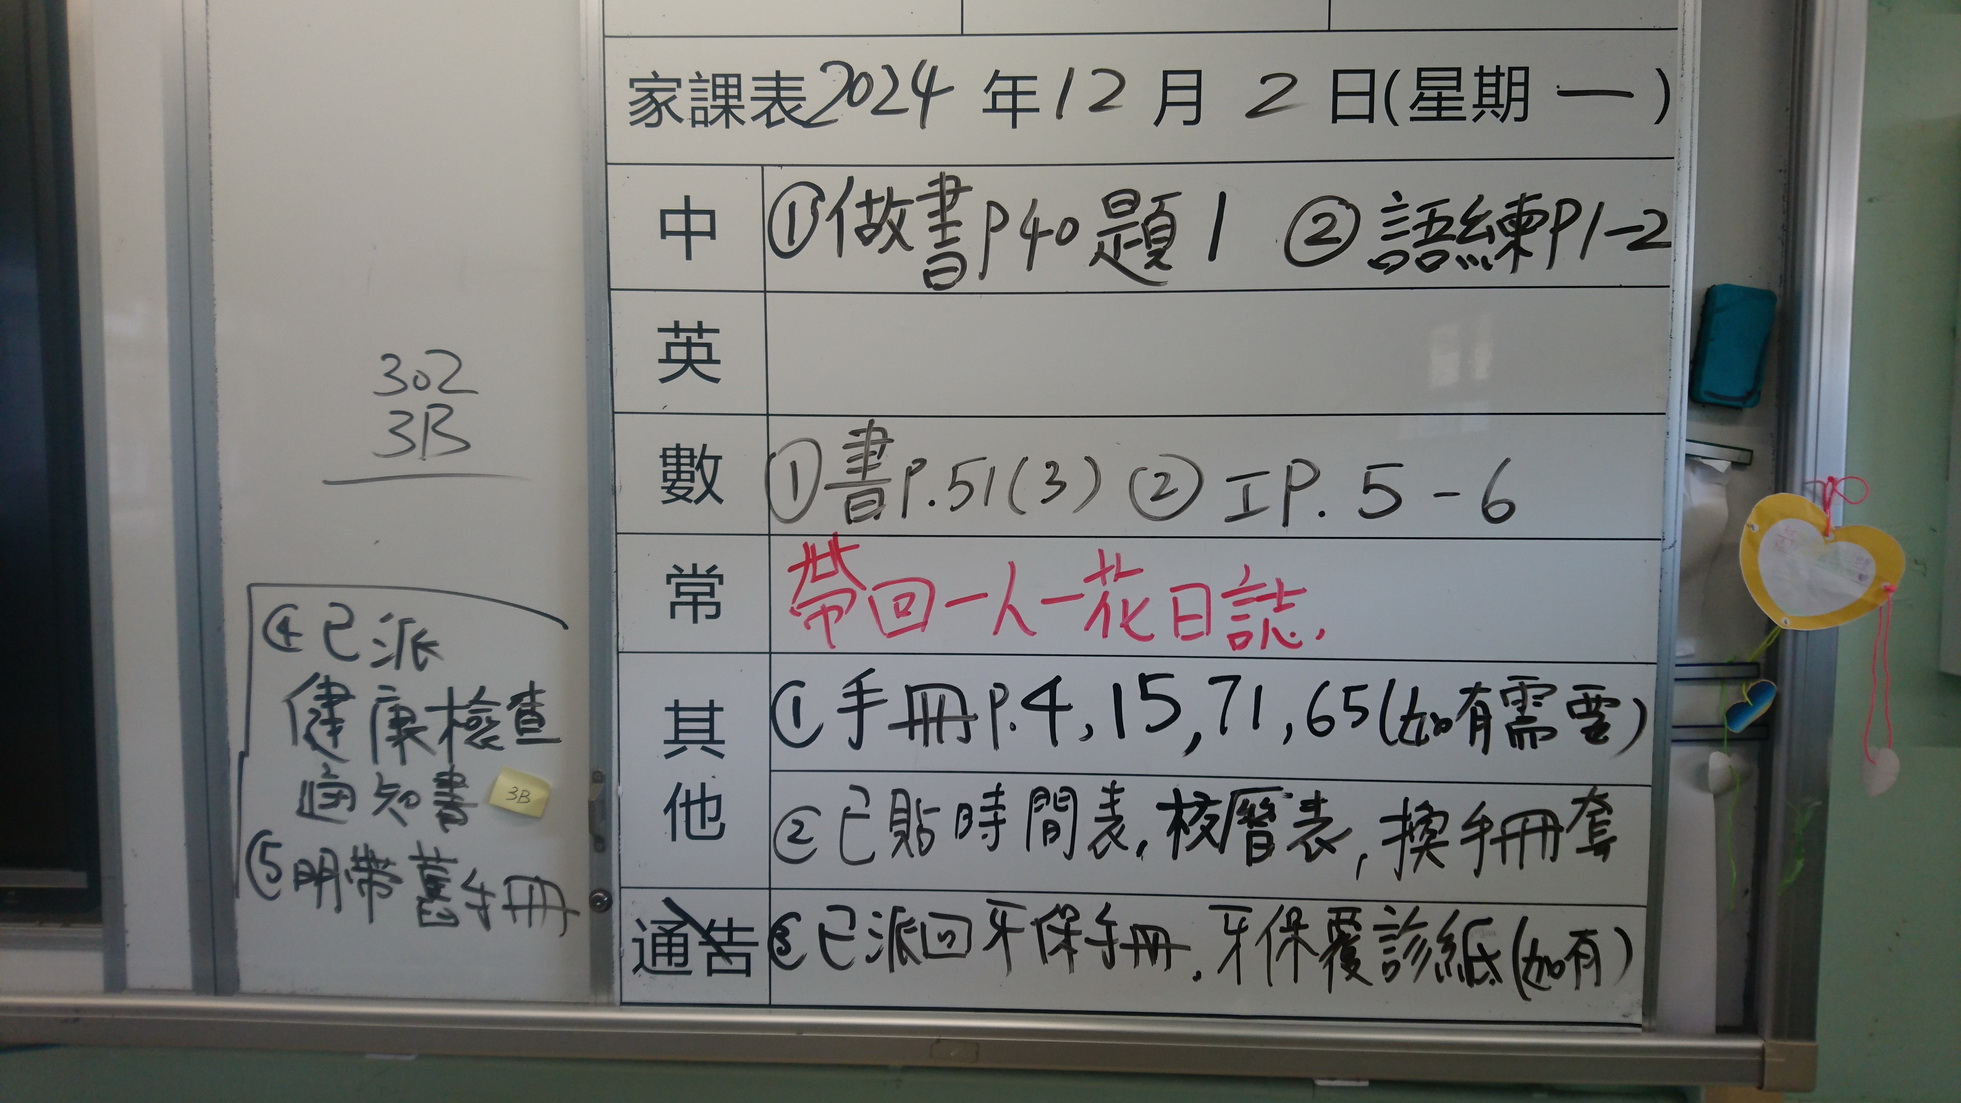 家課表2024年12月2日(星期一)
中 ①做書P40題1 ②語練P1-2
英
數 ①書P.51(3) ②工P.5-6
常 帶回一人一花日誌.
其他 ①手冊P.4,15,71,65(如有需要)
②已貼時間表,校曆表,換手冊套
通告 ③已派回牙保手冊,牙保覆診紙(如有)
302
3B
④已派
健康檢查
通知書
3B
⑤明帶舊手冊